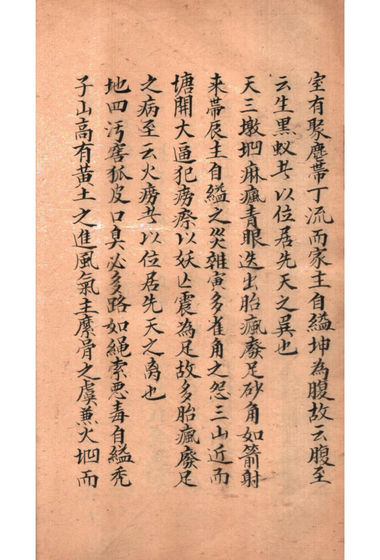 室有聚塵帶丁流而家主自縊坤為腹故云腹至
云生黑蚁其以位居先天之巽也
天三墩坳麻瘋青眼迭出胎瘋廢足砂角如箭射
来帶辰主自縊之災雜寅多雀角之怨三山近而
塘開大逼犯癆瘵以妖亡震為足故多胎瘋廢足
之病至云火癆其以位居先天之离也
地四污窖狐皮口臭必多路如繩索悪毒自縊禿
子山高有黃土之進風氣主縻骨之虞兼火坳而